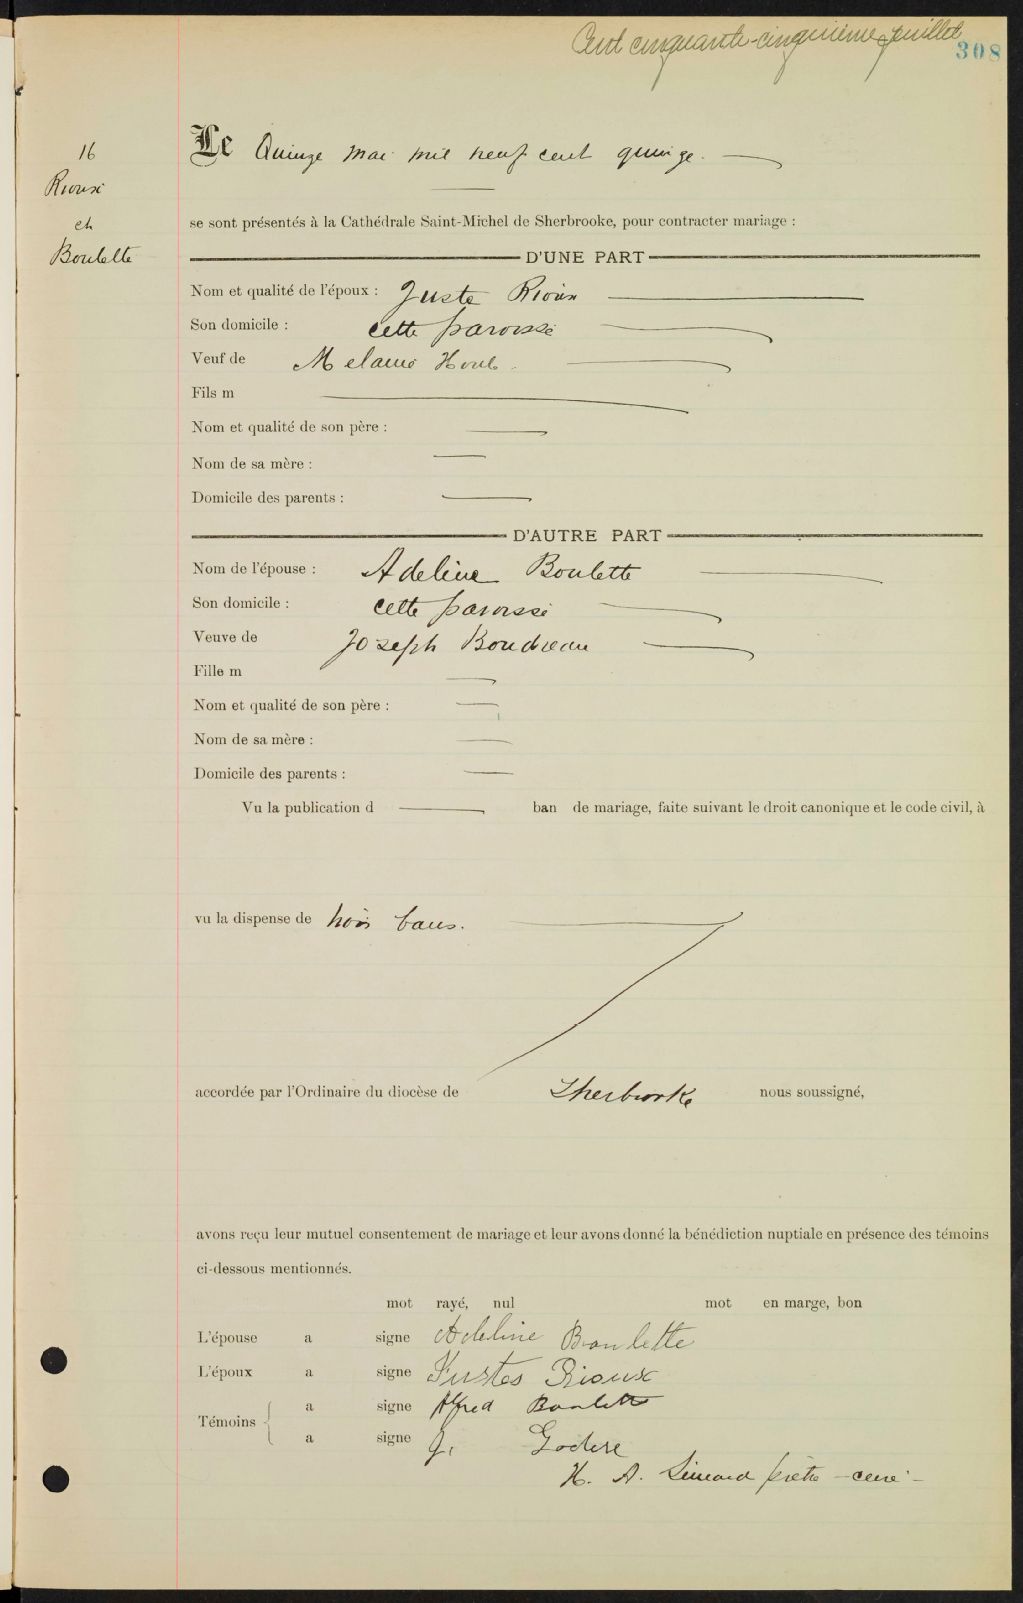 Cent cinquante-cinquième feuillet
308
16
Rioux
et
Boulette
Le Quinze mai mil neuf cent quinze.
se sont présentés à la Cathédrale Saint-Michel de Sherbrooke, pour contracter mariage :
D'UNE PART
Nom et qualité de l'époux : Juste Rioux
Son domicile : cette paroisse
Veuf de Melanie Houle
Fils m
Nom et qualité de son père :
Nom de sa mère :
Domicile des parents :
D'AUTRE PART
Nom de l'épouse : Adeline Boulette
Son domicile : cette paroisse
Veuve de Joseph Boudreau
Fille m
Nom et qualité de son père :
Nom de sa mère :
Domicile des parents :
Vu la publication d ban de mariage, faite suivant le droit canonique et le code civil, à
vu la dispense de trois bans.
accordée par l'Ordinaire du diocèse de Sherbrooke nous soussigné,
avons reçu leur mutuel consentement de mariage et leur avons donné la bénédiction nuptiale en présence des témoins
ci-dessous mentionnés.
mot rayé, nul mot en marge, bon
L'épouse a signe Adeline Boulette
L'époux a signe Justes Rioux
Témoins a signe Alfred Boulette
a signe J. Godere
H. A. Simard prêtre - curé -